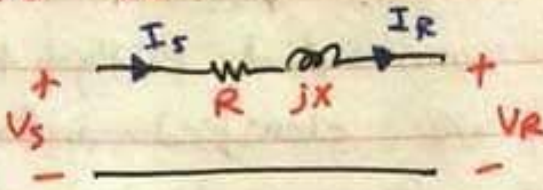 Is IR
+ R jX +
Vs VR
- -